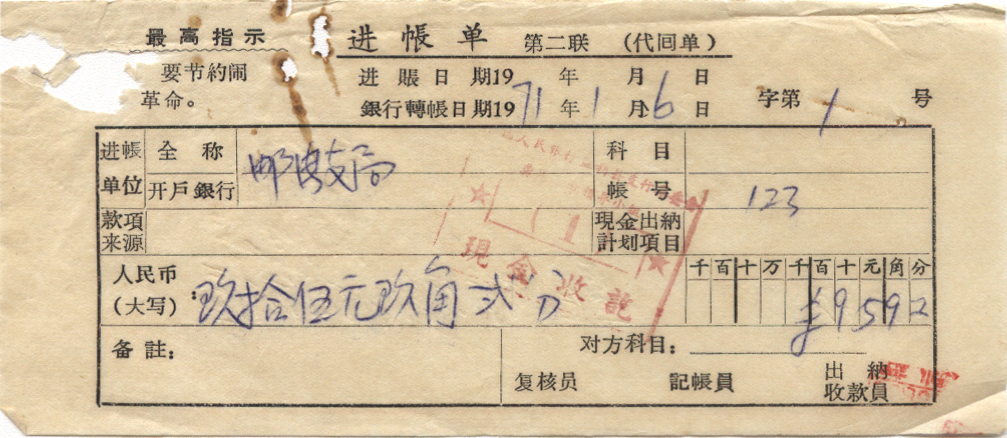 最高指示
要节約闹
革命。
进帳单 第二联 (代囘单)
进賬日期19 年 月 日
銀行轉帳日期1971年1月6日 字第1号
进帳单位 全称 邮电支局 科目
开戶銀行 帳号 123
款項来源 現金出納計划項目
人民币(大写): 玖拾伍元玖角弍分 千百十万千百十元角分
¥9592
現金收訖
(1
备註: 对方科目:
复核員 記帳員 出納收款員